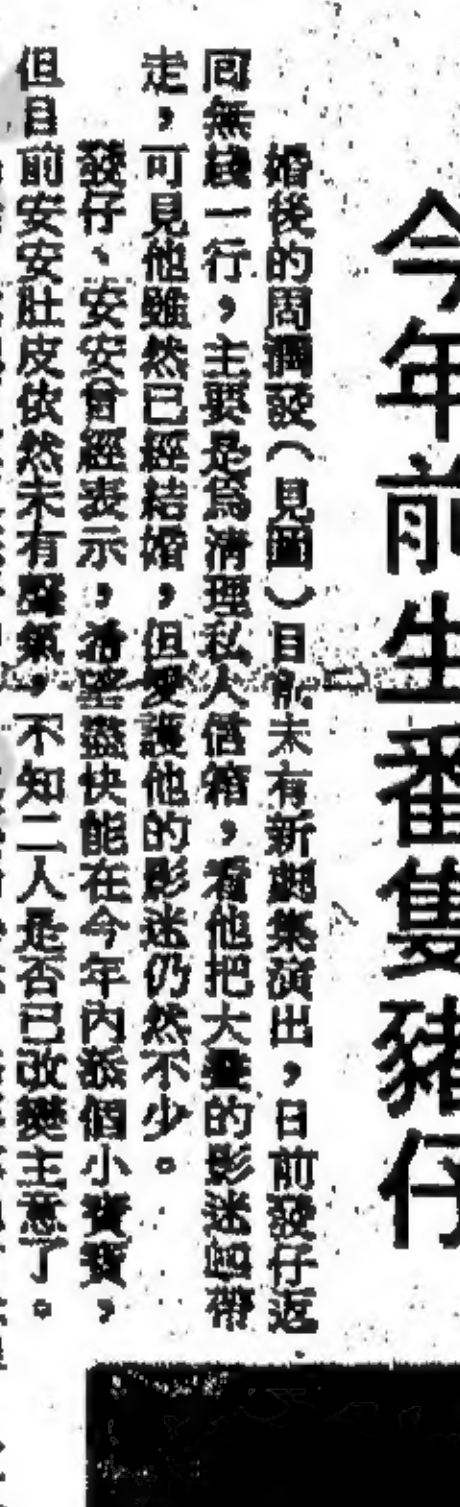 今年前生番隻豬仔
婚後的周潤發（見圖）目前未有新劇集演出，日前發仔返
回無綫一行，主要是爲清理私人信箱，看他把大量的影迷信帶
走，可見他雖然已經結婚，但愛護他的影迷仍然不少。
發仔、安安曾經表示，希望盡快能在今年內添個小寶寶，
但目前安安肚皮依然未有聲氣，不知二人是否已改變主意了。